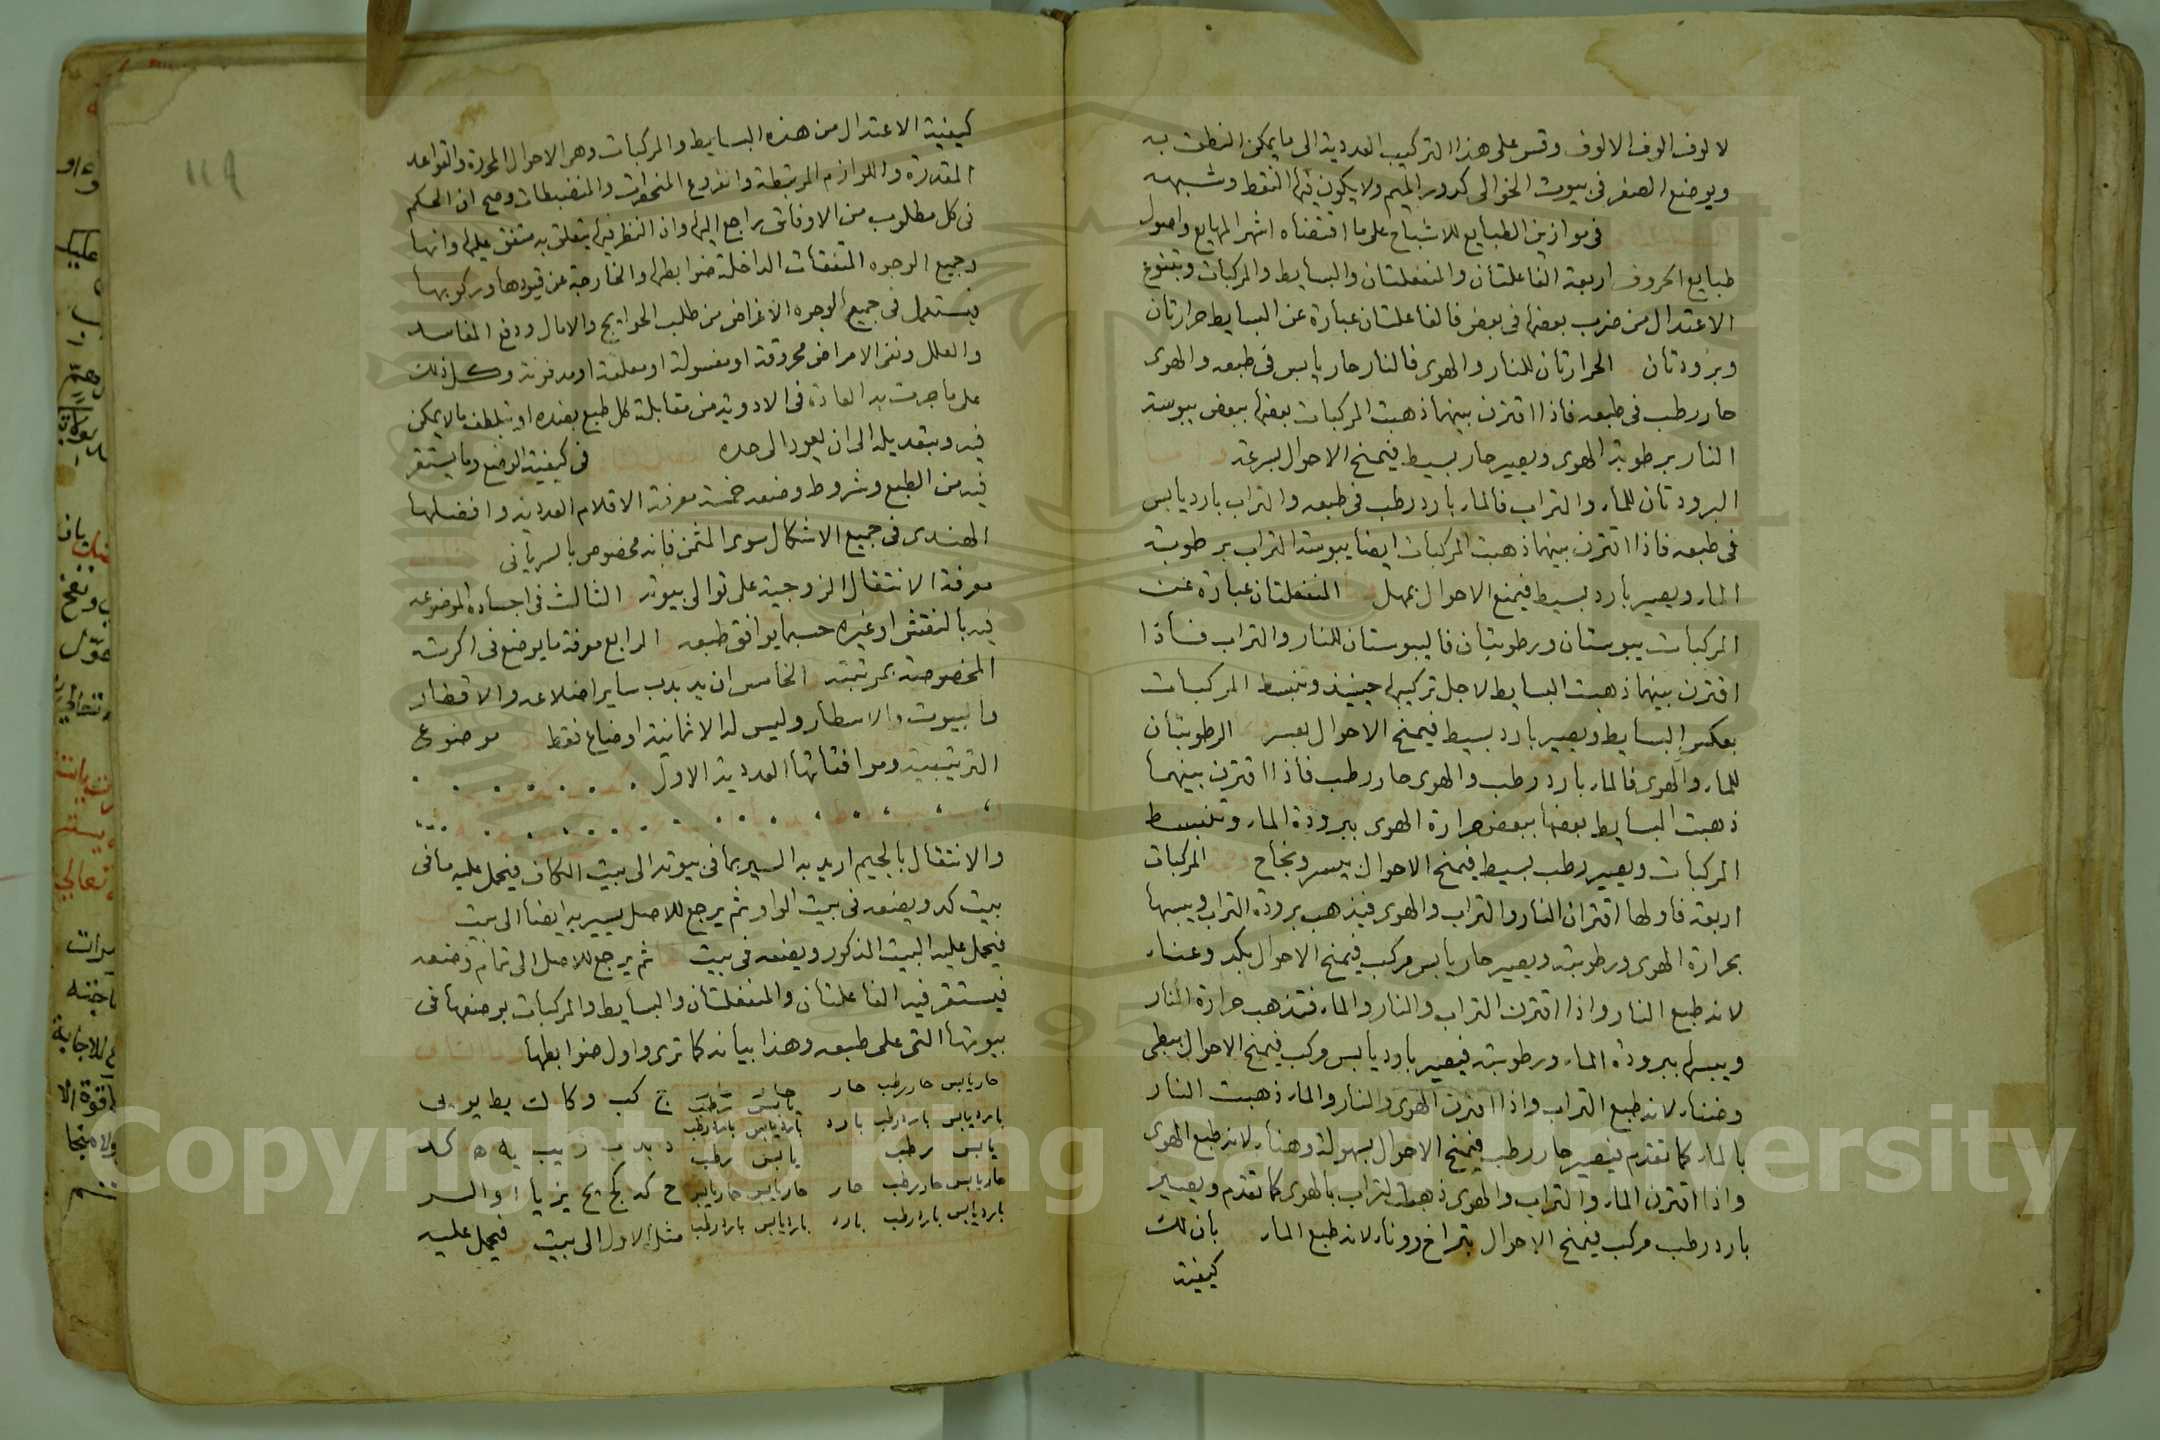 لالوف الوف الالوف وقس على هذا التركيب العددية الى ما يمكن النطق به
ويوضع الصفر في بيوت الخوالى كدور الميم ولا يكون فيها النقط وشبهه
في موازين الطبايع للاشباح على ما اقتضاه اشهر المهايع واصول
طبايع الحروف اربعة الفاعلتان والمنفعلتان والبسايط والمركبات ويتنوع
الاعتدال من ضرب بعضها في بعض فالفاعلتان عبارة عن البسايط حرارتان
وبرودتان الحرارتان للنار والهوى فالنار حار يابس في طبعه والهوى
حار رطب في طبعه فاذا اقترن بينهما ذهبت المركبات بعضها ببعض يبوسة
النار برطوبة الهوى ويصير حار بسيط فيمنح الاحوال بسرعة
البرودتان للماء والتراب فالماء بارد رطب في طبعه والتراب بارد يابس
في طبعه فاذا اقترن بينهما ذهبت المركبات ايضا يبوسة التراب برطوبة
الماء ويصير بارد بسيط فيمنح الاحوال بمهل المنفعلتان عبارة عن
المركبات يبوستان ورطوبتان فاليبوستان للنار والتراب فاذا
اقترن بينهما ذهبت البسايط لاجل تركيبها حينئذ وتنبسط المركبات
بعكس البسايط ويصير بارد بسيط فيمنح الاحوال بعسر الرطوبتان
للماء والهوى فالماء بارد رطب والهوى حار رطب فاذا اقترن بينهما
ذهبت البسايط بعضها ببعض حرارة الهوى ببرودة الماء وتنبسط
المركبات ويصير رطب بسيط فيمنح الاحوال بيسر ونجاح المركبات
اربعة فاولها اقتران النار والتراب والهوى فيذهب برودة التراب ويبسها
بحرارة الهوى ورطوبته ويصير حار يابس مركب فيمنح الاحوال بكد وعناء
لانه طبع النار واذا اقترن التراب والنار والماء فتذهب حرارة النار
ويبسها ببرودة الماء ورطوبته فيصير بارد يابس مركب فيمنح الاحوال ببطى
وضناء لانه طبع التراب واذا اقترن الهوى والنار والماء ذهبت النار
بالماء كما تقدم فيصير حار رطب فيمنح الاحوال بسهولة وهناء لانه طبع الهوى
واذا اقترن الماء والتراب والهوى ذهبت التراب بالهوى كما تقدم ويصير
بارد رطب مركب فيمنح الاحوال بتراخ لانه طبع الماء بان لك
كيفية
119
كيفية الاعتدال من هذه البسايط والمركبات وهى الاحوال المحررة والقواعد
المقدرة واللوازم المرتبطة والفروع والمنضبطات وصح ان الحكم
في كل مطلوب من الاوفاق راجع اليها وان النظر فيها يتعلق به متفق عليها وانها
وجميع الوجوه المتفقات الداخلة ضوابطها والخارجة عن قيودها وركوبها
فيستعمل في جميع الوجوه الاغراض من طلب الحوايج والامال ودفع المفاسد
والعلل ونفى الامراض محروقة او مغسولة او معلقة او مدفونة وكل ذلك
على ما جرت به العادة في الادوية من مقابلة كل طبع بضده او بتلطف ما لا يمكن
فيه وبتعديله الى ان يعود الى حده في كيفية الوضع وما يستقر
فيه من الطبع وشروط وضعه خمسة معرفة الاقلام العددية وافضلها
الهندى في جميع الاشكال سوى المثمن فانه مخصوص بالسريانى
معرفة الانتقال الزوجية على توالى بيوته الثالث في اجساده الموضوعه
فيه بالنقش او غيره حسبما يوافق طبعه الرابع معرفة ما يوضع في اكرته
المخصوصة بمرتبته الخامس ان يدبدب ساير اضلاعه والاقطار
والبيوت والاسطار وليس له الا ثمانية اوضاع فقط موضوع
الترتيبية وموافقاتها العددية الاول
والانتقال بالجيم اريد به السير بما في بيوته الى بيت الكاف فيحمل عليه ما في
بيت كد ويضعه في بيت الواو ثم يرجع للاصل يسير به ايضا الى بيت
فيحمل عليه البيت المذكور ويضعه في بيت ثم يرجع للاصل الى تمام وضعه
فيستقر فيه الفاعلتان والمنفعلتان والبسايط والمركبات بوضعها في
بيوتها التى على طبعه وهذا بيانه كما ترى واول ضوابطها
حار يابس حار رطب حار يابس رطب ج كب و كا ك يط يو
بارد يابس بارد رطب بارد بارد يابس بارد رطب
يابس رطب يابس رطب
حار يابس حار رطب حار حار يابس ح كد كج يح يز يا
بارد يابس بارد رطب بارد بارد يابس بارد رطب مثل الاول الى بيت فيحمل عليه
Copyright © King Saud University